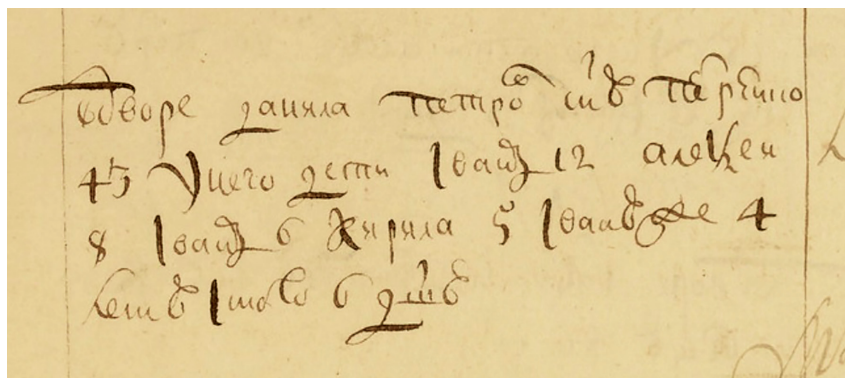 Водворе данила петров снъ першино
45 Унего дети Iванъ 12 алеѯеи
8 Iванъ 6 Кирила 5 Iванъ же 4
Iтого 6 дшъ